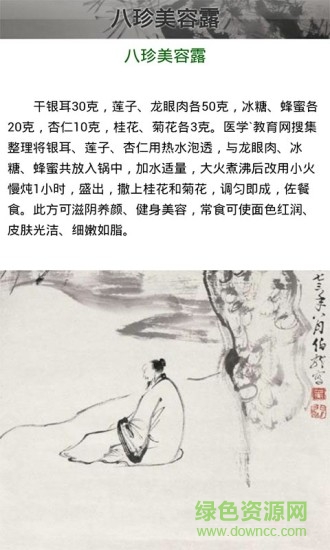 八珍美容露
八珍美容露
干银耳30克，莲子、龙眼肉各50克，冰糖、蜂蜜各
20克，杏仁10克，桂花、菊花各3克。医学`教育网搜集
整理将银耳、莲子、杏仁用热水泡透，与龙眼肉、冰
糖、蜂蜜共放入锅中，加水适量，大火煮沸后改用小火
慢炖1小时，盛出，撒上桂花和菊花，调匀即成，佐餐
食。此方可滋阴养颜、健身美容，常食可使面色红润、
皮肤光洁、细嫩如脂。
绿色资源网
www.downcc.com